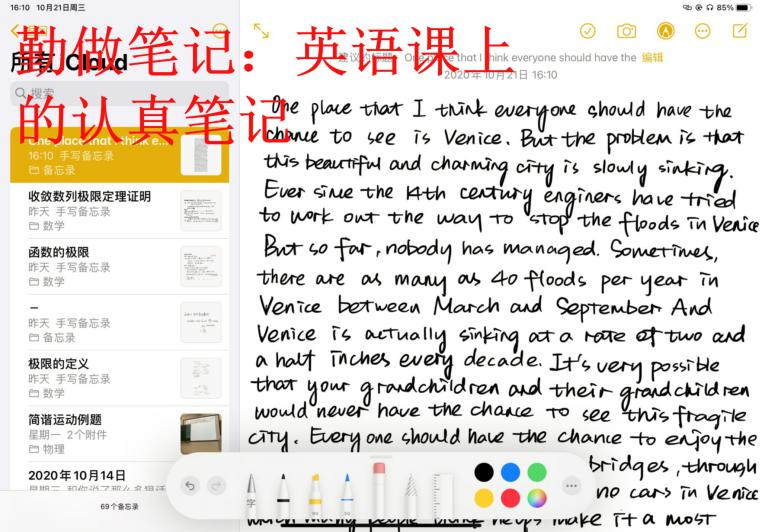 16:10 10月21日周三
85%
勤做笔记：英语课上
的认真笔记
所有 iCloud
搜索
One place that I think e...
16:10 手写备忘录
备忘录
收敛数列极限定理证明
昨天 手写备忘录
数学
函数的极限
昨天 手写备忘录
数学
昨天 手写备忘录
备忘录
极限的定义
昨天 手写备忘录
数学
简谐运动例题
星期一 2个附件
物理
2020年10月14日
69个备忘录
建议的标题: One place that I think everyone should have the 编辑
2020年10月21日 16:10
One place that I think everyone should have the
chance to see is Venice. But the problem is that
this beautiful and charming city is slowly sinking.
Ever since the 14th century enginers have tried
to work out the way to stop the floods in Venice
But so far, nobody has managed. Sometimes,
there are as many as 40 floods per year in
Venice between March and September And
Venice is actually sinking at a rate of two and
a half inches every decade. It's very possible
that your grandchildren and their grandchildren
would never have the chance to see this fragile
city. Everyone should have the chance to enjoy the
bridges, through
no cars in Venice
which many people think helps make it a most
字
50
50